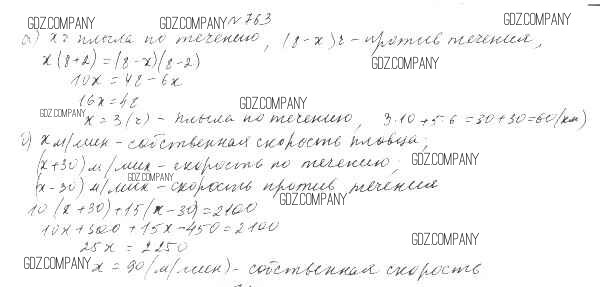 GDZ.COMPANY GDZ.COMPANY № 763 GDZ.COMPANY
а) x ч плыла по течению, (8-x) ч - против течения,
x(8+2)=(8-x)(8-2) GDZ.COMPANY
10x = 48 - 6x
16x = 48 GDZ.COMPANY
GDZ.COMPANY x = 3 (ч) - плыла по течению, 3·10+5·6=30+30=60 (км)
x м/мин - собственная скорость пловца;
(x+30) м/мин - скорость по течению; GDZ.COMPANY
GDZ.COMPANY
(x-30) м/мин - скорость против течения
10(x+30)+15(x-30)=2100 GDZ.COMPANY
10x+300+15x-450=2100
25x = 2250 GDZ.COMPANY
GDZ.COMPANY x = 90 (м/мин) - собственная скорость